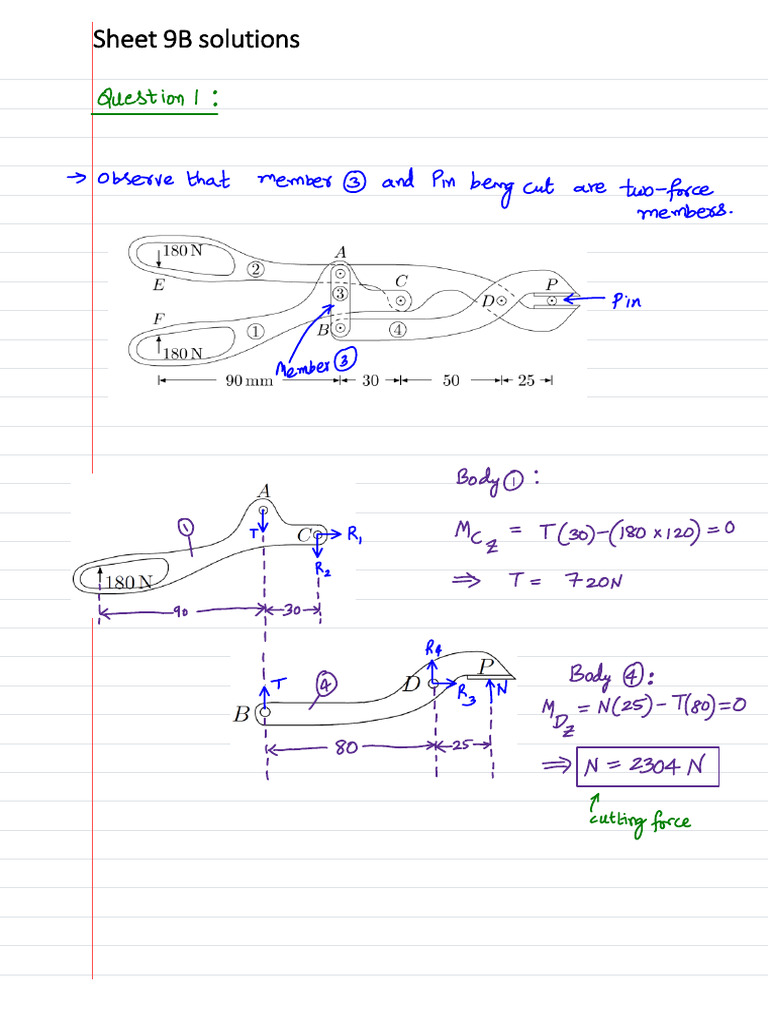 Sheet 9B solutions
Question 1 :
→ Observe that member ③ and Pin being cut are two-force
members.
180 N
②
A
E
③
C
P
F
D
Pin
①
B
④
180 N
Member ③
90 mm
30
50
25
A
①
T
C
R₁
R₂
180 N
90
30
Body ① :
M_Cz = T(30)-(180 x 120) = 0
⇒ T = 720N
R4
P
T
④
D
R3
N
B
80
25
Body ④:
M_Dz = N(25) - T(80) = 0
⇒ N = 2304 N
↑
cutting force